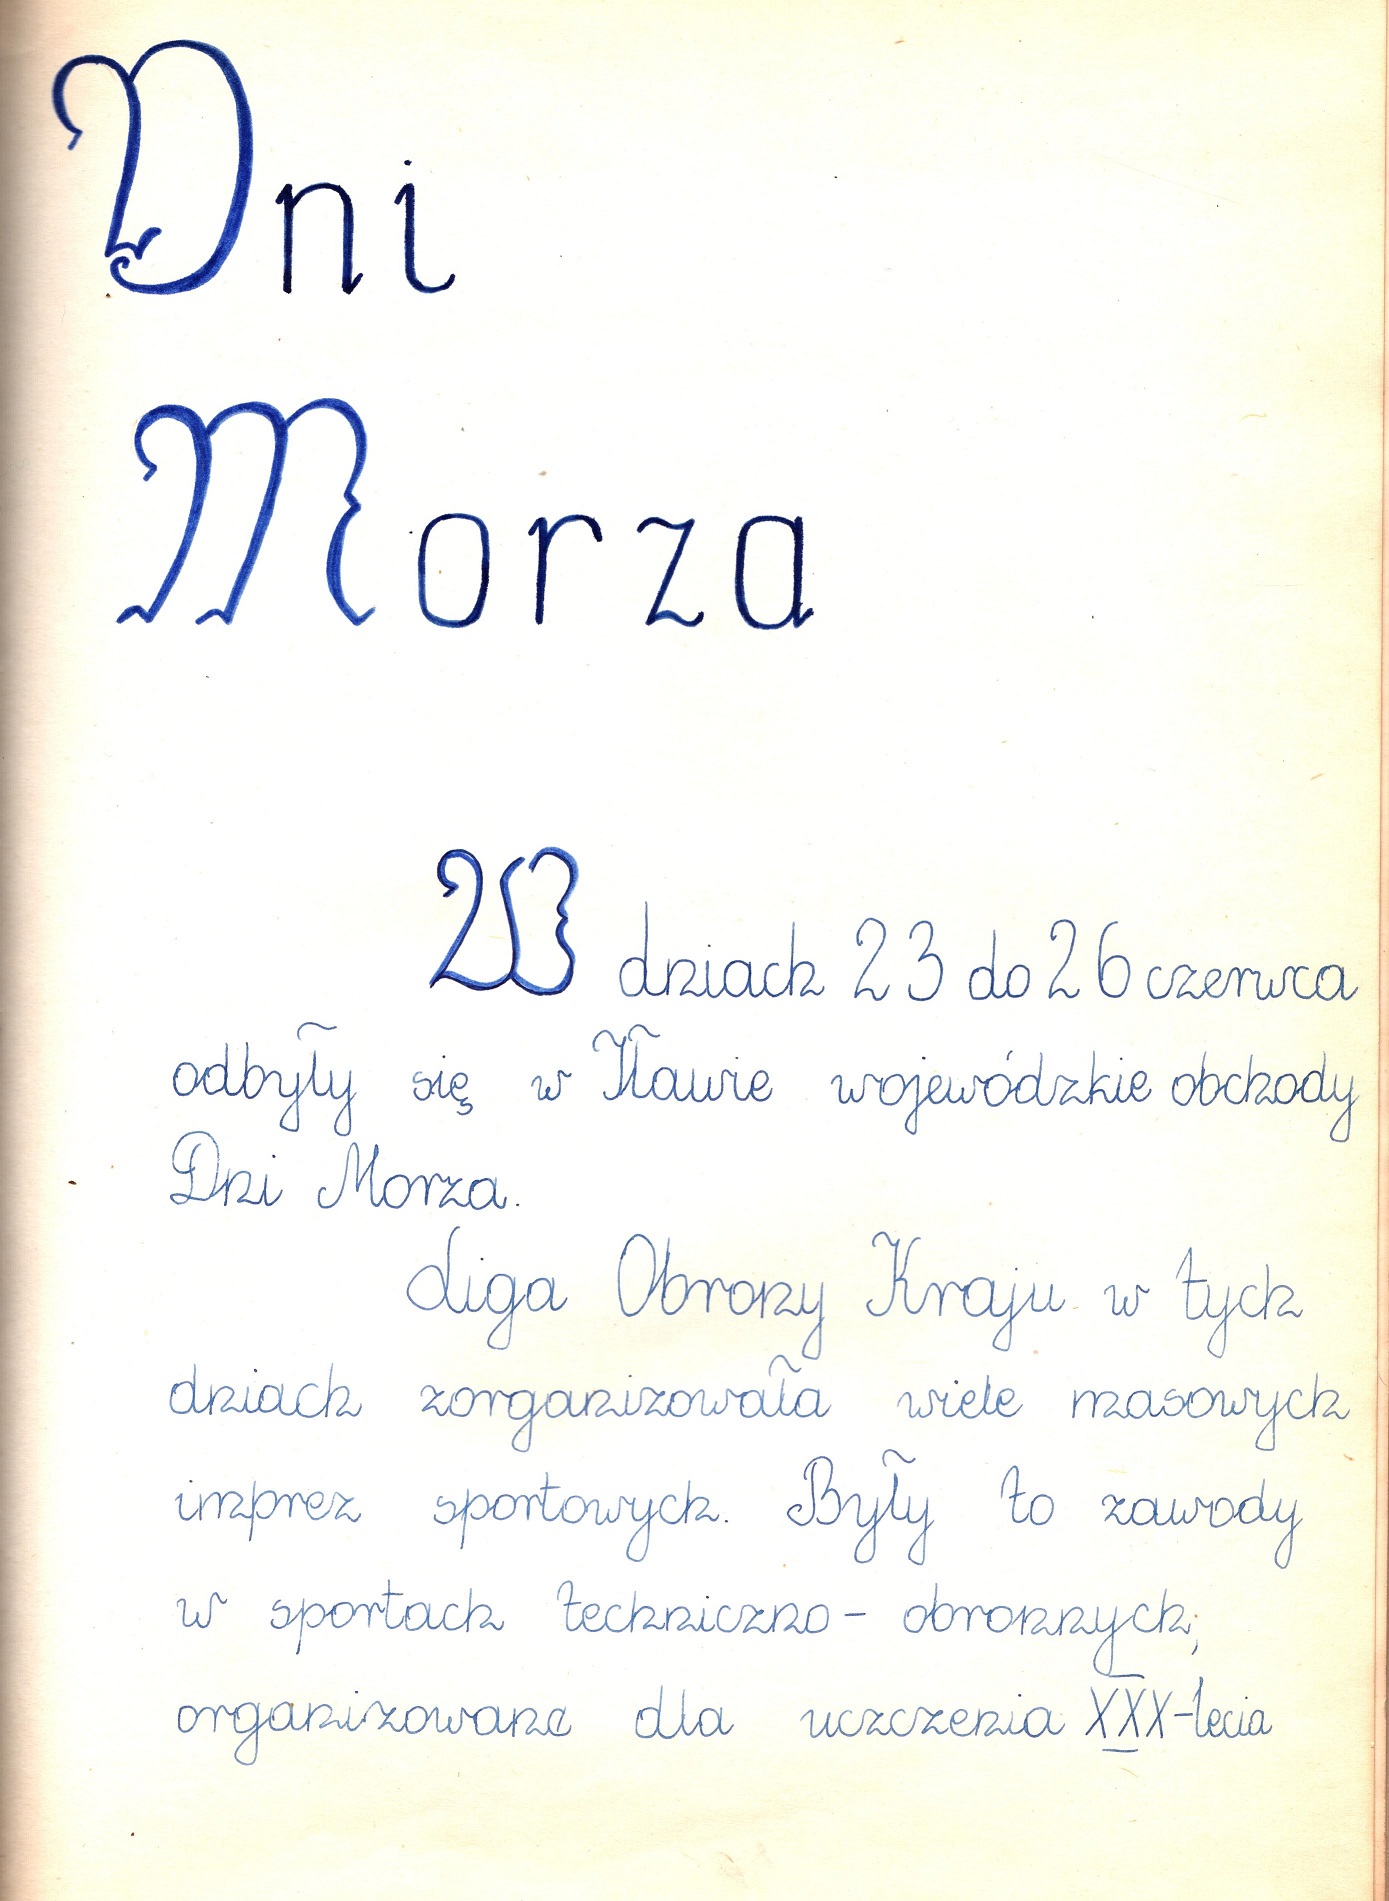 Dni
Morza
W dniach 23 do 26 czerwca
odbyły się w Iławie wojewódzkie obchody
Dni Morza.
Liga Obrony Kraju w tych
dniach zorganizowała wiele masowych
imprez sportowych. Były to zawody
w sportach techniczno - obronnych,
organizowane dla uczczenia XXX-lecia